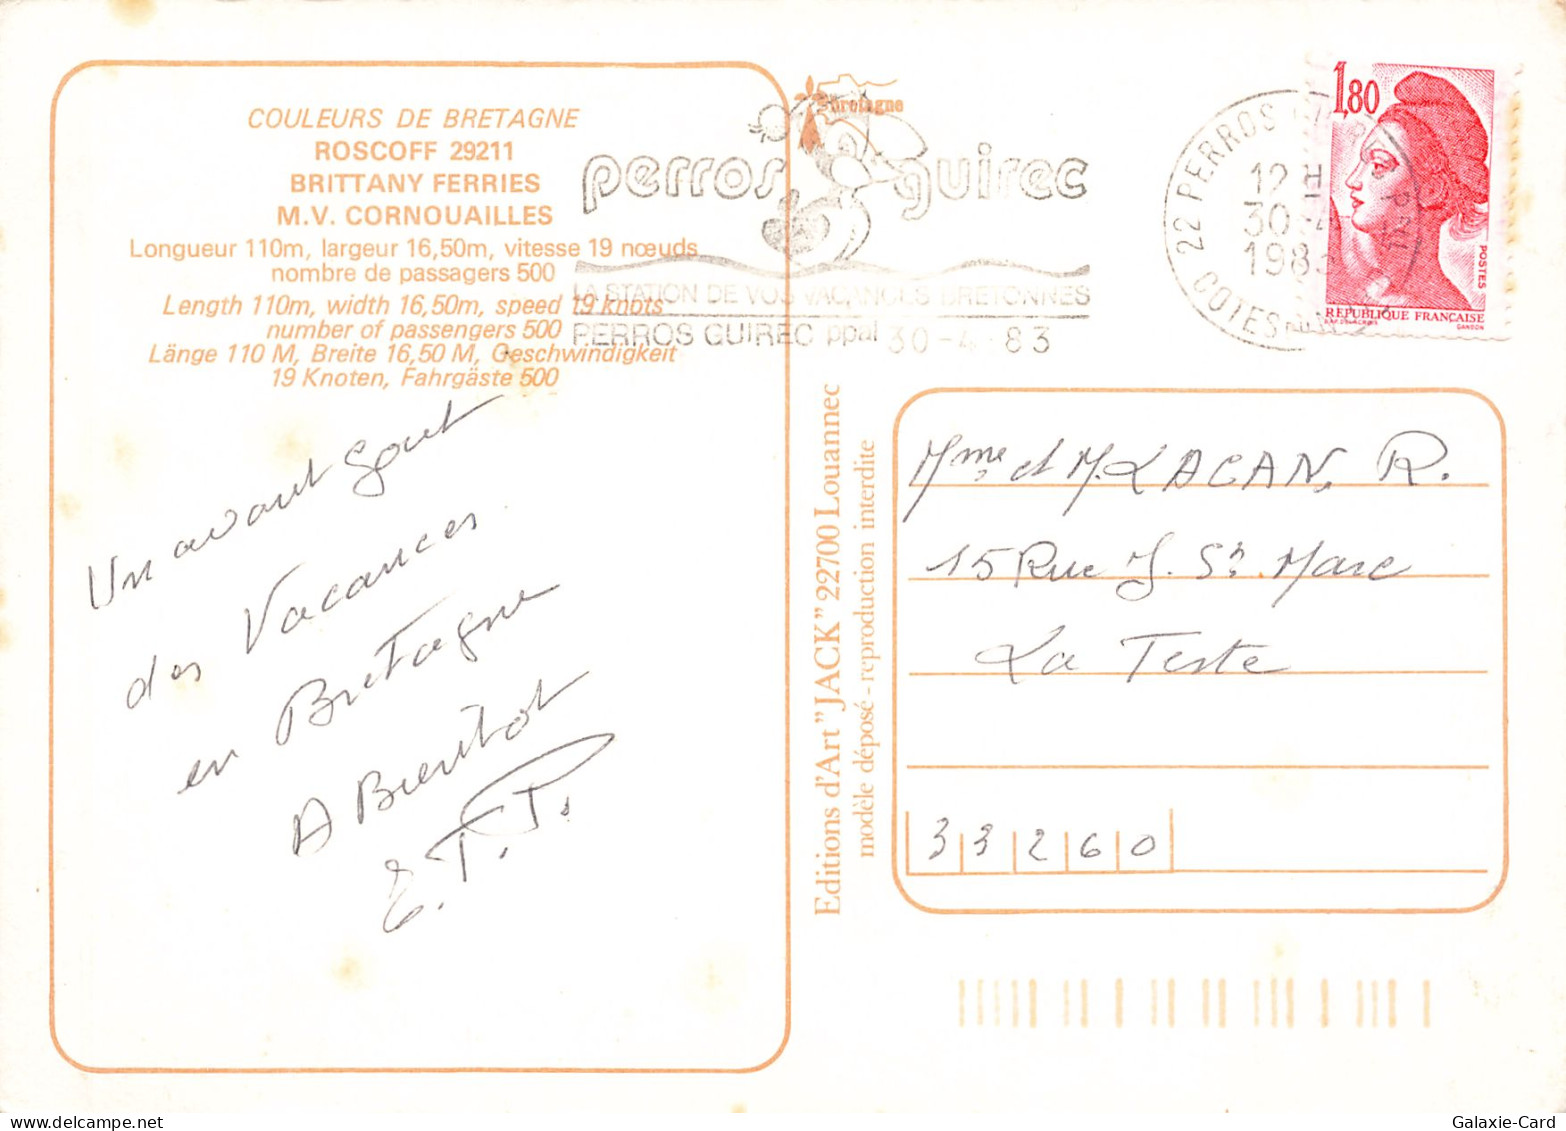 COULEURS DE BRETAGNE
ROSCOFF 29211
BRITTANY FERRIES
M.V. CORNOUAILLES
Longueur 110m, largeur 16,50m, vitesse 19 nœuds
nombre de passagers 500
Length 110m, width 16,50m, speed 19 knots
number of passengers 500
Länge 110 M, Breite 16,50 M, Geschwindigkeit
19 Knoten, Fahrgäste 500
Un avant Gout
des Vacances
en Bretagne
A Bientot
E.T.P.
bretagne
perros guirec
LA STATION DE VOS VACANCES BRETONNES
PERROS GUIREC ppal 30-4-83
22 PERROS
COTES
12 H
30-4
1983
1,80
POSTES
REPUBLIQUE FRANÇAISE
GANDON
Editions d'Art "JACK" 22700 Louannec
modèle déposé - reproduction interdite
Mme et M. LACAN, R.
15 Rue J. St. Marc
La Teste
33260
Galaxie-Card